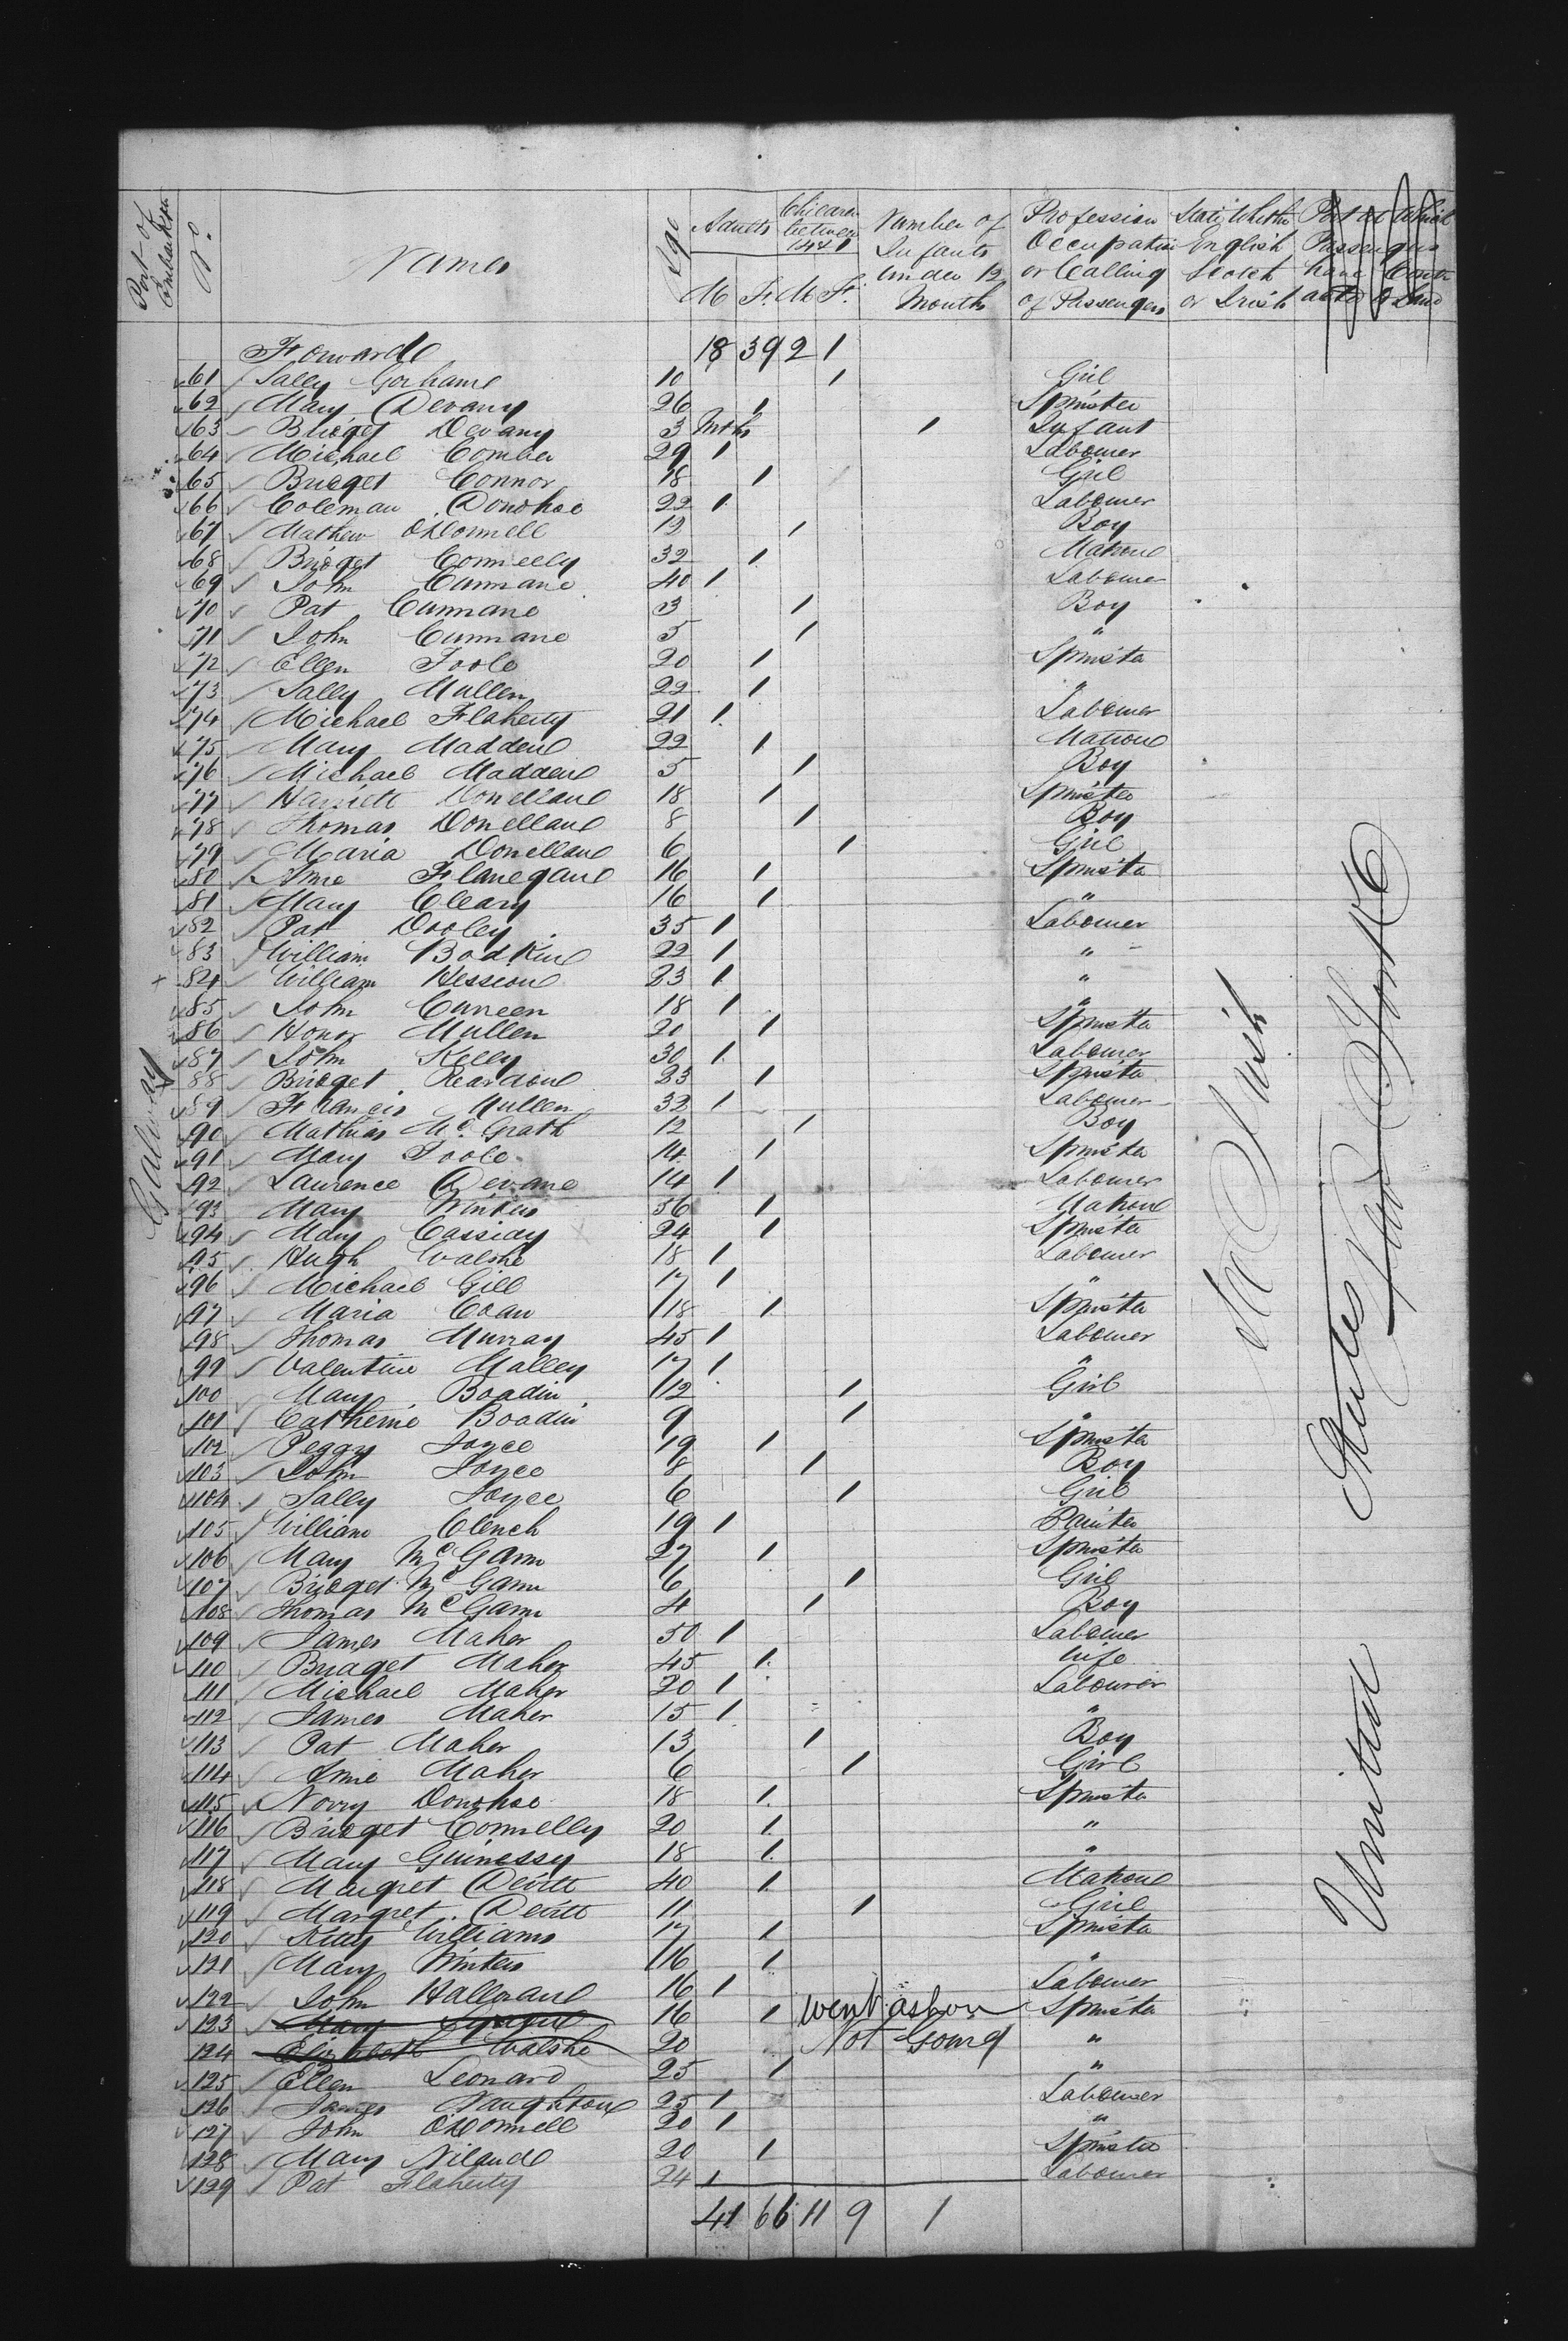 Port of Embarkation No. Names Age Adults M F Children between 14 & 1 M F Number of Infants under 12 Months Profession Occupation or Calling of Passengers State Whether English Scotch or Irish Port at Which Passengers have
Forward 18 39 2 1
61 Sally Gorham 10 1 Girl
62 Mary Devany 26 1 Spinster
63 Bridget Devany 3 Mths 1 Infant
64 Michael Comber 29 1 Labourer
65 Bridget Connor 18 1 Girl
66 Coleman Donohoe 22 1 Labourer
67 Mathew O'Donnell 12 1 Boy
68 Bridget Connelly 32 1 Matron
69 John Cunnane 40 1 Labourer
70 Pat Cunnane 3 1 Boy
71 John Cunnane 5 1 "
72 Ellen Toole 20 1 Spinster
73 Sally Mullen 22 1 "
74 Michael Flaherty 21 1 Labourer
75 Mary Madden 22 1 Matron
76 Michael Madden 5 1 Boy
77 Harriett Donellan 18 1 Spinster
78 Thomas Donellan 8 1 Boy
79 Maria Donellan 6 1 Girl
80 Anne Flanegan 16 1 Spinster
81 Mary Cleary 16 1 "
82 Pat Dooley 35 1 Labourer
83 William Bodkin 22 1 "
84 William Hession 23 1 "
85 John Cuneen 18 1 "
86 Honor Mullen 20 1 Spinster
87 John Kelly 30 1 Labourer
88 Bridget Reardon 23 1 Spinster
89 Francis Mullen 32 1 Labourer
90 Mathias McGrath 12 1 Boy
91 Mary Toole 14 1 Spinster
92 Laurence Devane 14 1 Labourer
93 Mary Winters 56 1 Matron
94 Mary Cassidy 24 1 Spinster
95 Hugh Walshe 18 1 Labourer
96 Michael Gill 17 1 "
97 Maria Coan 18 1 Spinster
98 Thomas Murray 45 1 Labourer
99 Valentine Malley 17 1 "
100 Mary Boadin 12 1 Girl
101 Catherine Boadin 9 1 "
102 Peggy Joyce 19 1 Spinster
103 John Joyce 8 1 Boy
104 Sally Joyce 6 1 Girl
105 William Clench 19 1 Painter
106 Mary McGann 27 1 Spinster
107 Bridget McGann 6 1 Girl
108 Thomas McGann 4 1 Boy
109 James Maher 50 1 Labourer
110 Bridget Maher 45 1 Wife
111 Michael Maher 20 1 Labourer
112 James Maher 15 1 "
113 Pat Maher 13 1 Boy
114 Anne Maher 6 1 Girl
115 Norry Donohoe 18 1 Spinster
116 Bridget Connelly 20 1 "
117 Mary Guinessy 18 1 "
118 Margret Devitt 40 1 Matron
119 Margret Devitt 11 1 Girl
120 Kitty Williams 17 1 Spinster
121 Mary Winters 16 1 "
122 John Halloran 16 1 Labourer
123 Mary 16 1 went ashore Spinster
124 Elizabeth Walshe 20 Not Going "
125 Ellen Leonard 25 1 "
126 James Naughton 25 1 Labourer
127 John O'Donnell 20 1 "
128 Mary Niland 20 1 Spinster
129 Pat Flaherty 24 1 Labourer
41 66 11 9 1
Galway
All Irish
United States
New York